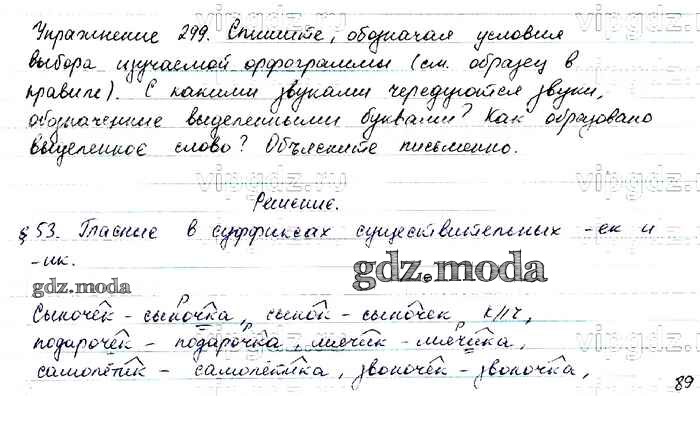 vipgdz.ru vipgdz.ru
Упражнение 299. Спишите, обозначая условия
выбора изучаемой орфограммы (см. образец в
правиле). С какими звуками чередуются звуки,
обозначенные выделенными буквами? Как образовано
выделенное слово? Объясните письменно.
vipgdz.ru vipgdz.ru
Решение.
§53. Гласные в суффиксах существительных -ек и
-ик.
gdz.moda
gdz.moda
Сыночек - сыночка, сынок - сыночек, к//ч,
подарочек - подарочка, мячик - мячика,
самолётик - самолётика, звоночек - звоночка,
vipgdz.ru vipgdz.ru
89